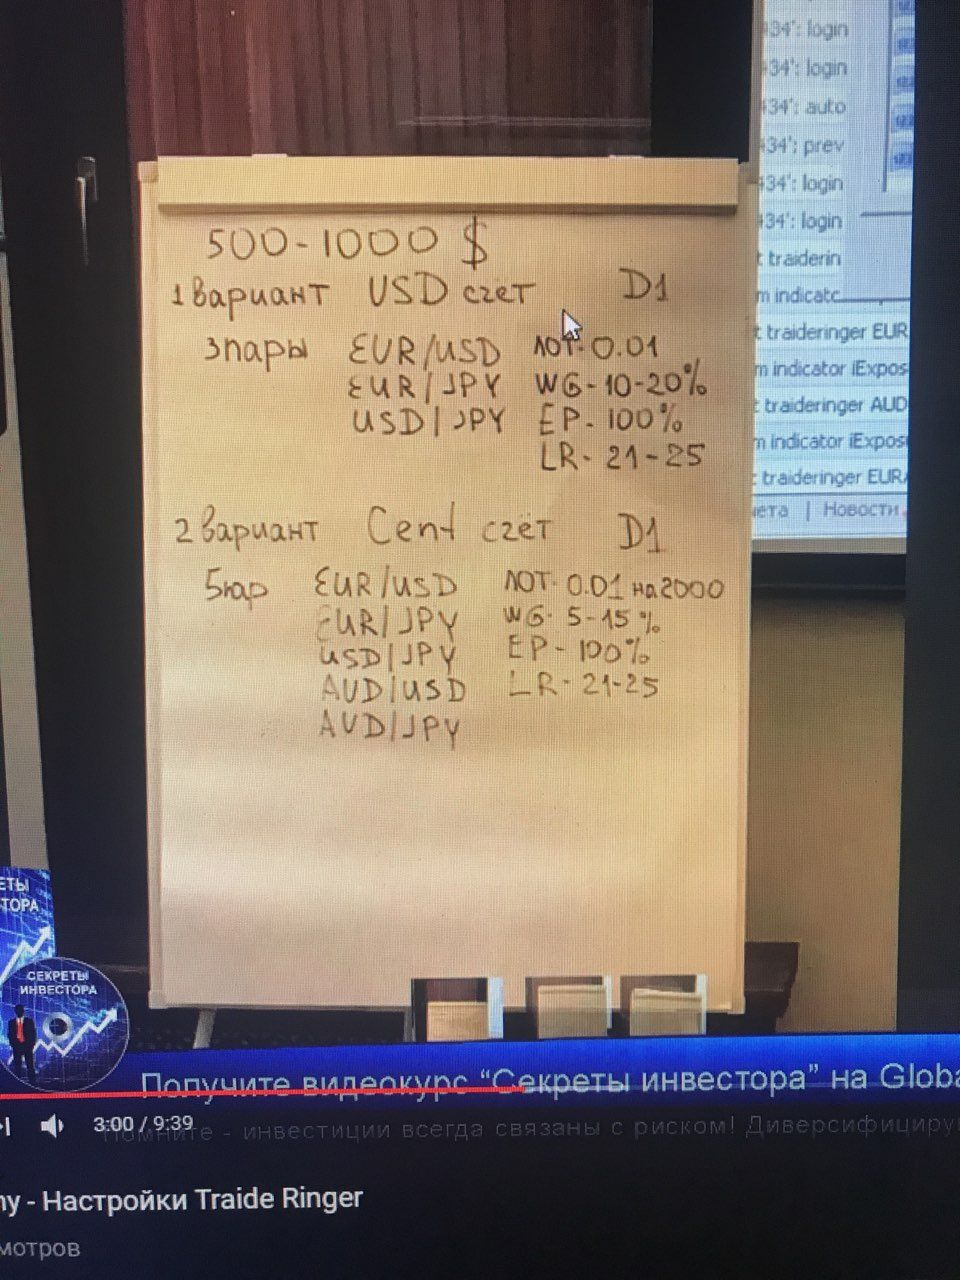 34': login
34': login
34': auto
34': prev
34': login
34': login
t traiderin
m indicatc
t traideringer EUR
m indicator iExpos
t traideringer AUD
m indicator iExpos
t traideringer EUR
ета | Новости
500-1000 $
1 вариант USD счет D1
3 пары EUR/USD лот-0.01
EUR/JPY WG-10-20%
USD/JPY EP-100%
LR-21-25
2 вариант Cent счёт D1
5 пар EUR/USD лот-0.01 на 2000
EUR/JPY WG-5-15%
USD/JPY EP-100%
AUD/USD LR-21-25
AUD/JPY
ЕТЫ
ТОРА
СЕКРЕТЫ
ИНВЕСТОРА
Получите видеокурс “Секреты инвестора” на Globa
3:00 / 9:39
Помните - инвестиции всегда связаны с риском! Диверсифициру
ny - Настройки Traide Ringer
мотров